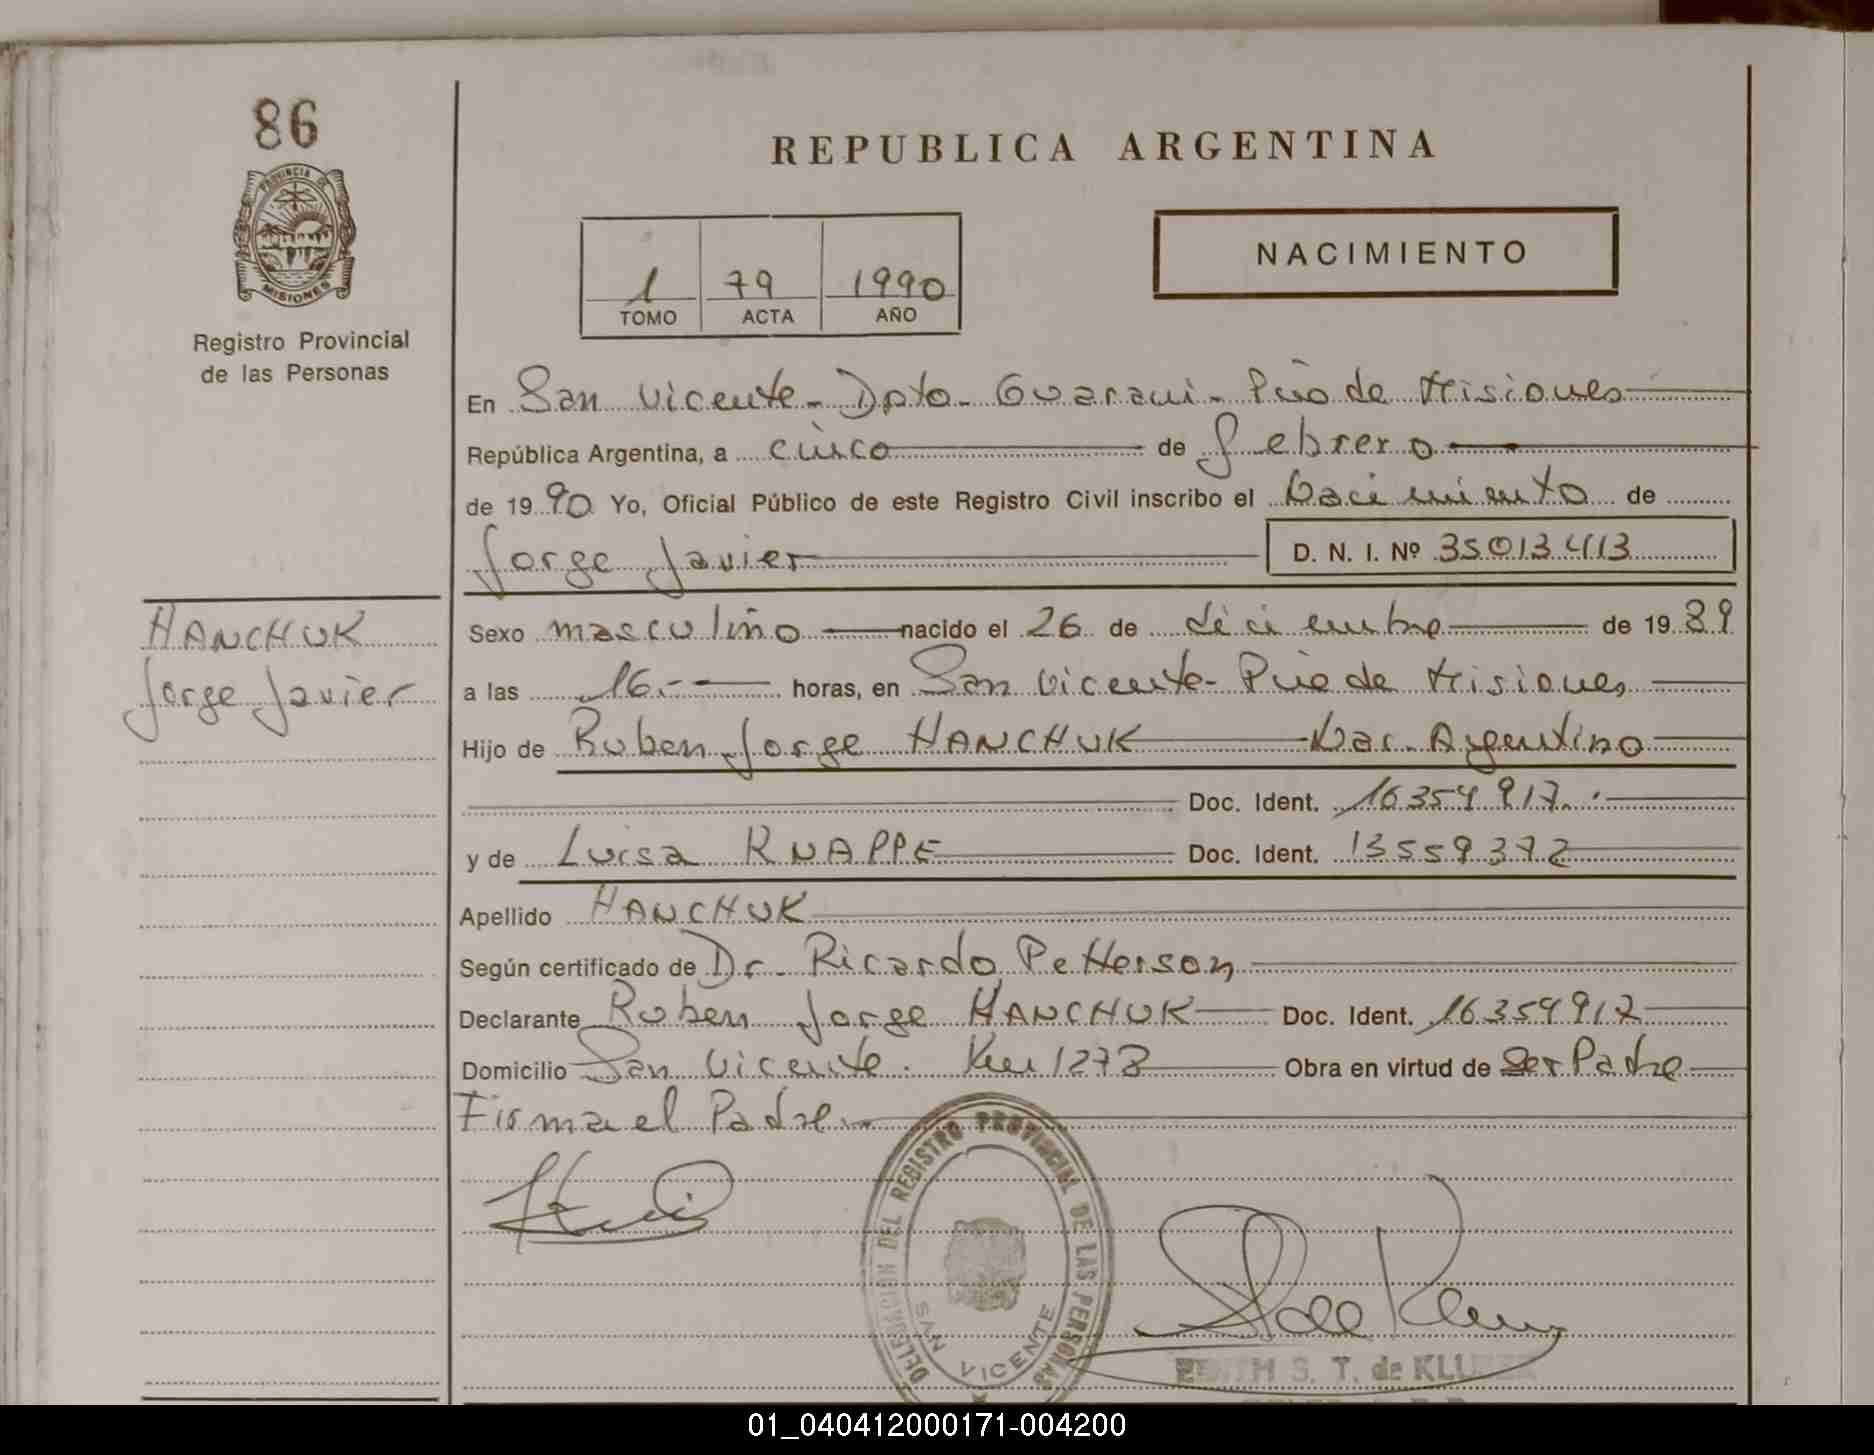 86
PROVINCIA DE
MISIONES
Registro Provincial
de las Personas
HANCHUK
Jorge Javier
REPUBLICA ARGENTINA
1 79 1990
TOMO ACTA AÑO
NACIMIENTO
En San Vicente - Dpto - Guarani - Pcia de Misiones
República Argentina, a cinco de Febrero
de 1990 Yo, Oficial Público de este Registro Civil inscribo el Nacimiento de
Jorge Javier D. N. I. Nº 35013413
Sexo masculino nacido el 26 de diciembre de 1989
a las 16.- horas, en San Vicente - Pcia de Misiones
Hijo de Ruben Jorge HANCHUK Nac. Argentino
Doc. Ident. 16354917.
y de Luisa KNAPPE Doc. Ident. 13559372
Apellido HANCHUK
Según certificado de Dr. Ricardo Petterson
Declarante Ruben Jorge HANCHUK Doc. Ident. 16354917
Domicilio San Vicente. Km 1273 Obra en virtud de Ser Padre
Firma el Padre
DELEGACION DEL REGISTRO PROVINCIAL DE LAS PERSONAS
SAN VICENTE
EDITH S. T. de
01_040412000171-004200